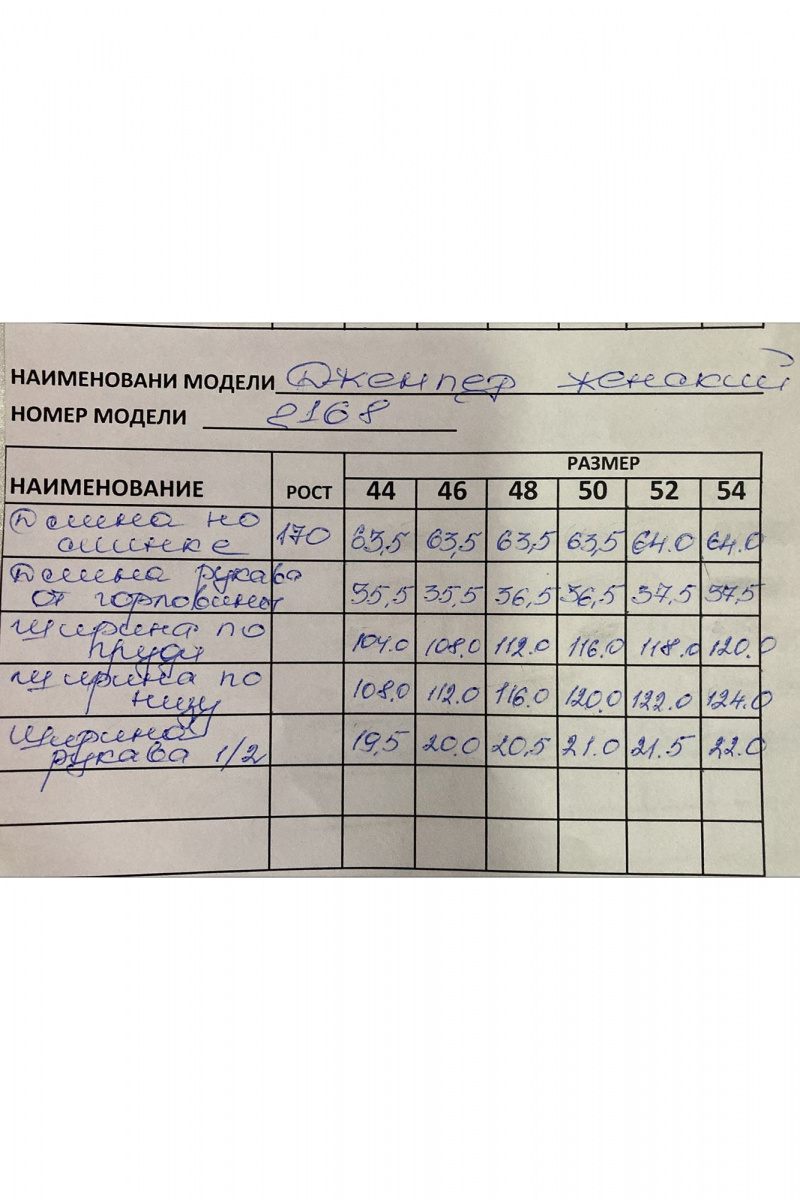 НАИМЕНОВАНИ МОДЕЛИ Джемпер женский
НОМЕР МОДЕЛИ 2168
РАЗМЕР
НАИМЕНОВАНИЕ РОСТ 44 46 48 50 52 54
Длина по спинке 170 63,5 63,5 63,5 63,5 64.0 64.0
Длина рукава от горловины 35,5 35,5 36,5 36,5 37.5 37,5
Ширина по груди 104.0 108.0 112.0 116.0 118.0 120.0
Ширина по низу 108.0 112.0 116.0 120.0 122.0 124.0
Ширина рукава 1/2 19,5 20.0 20,5 21.0 21.5 22.0